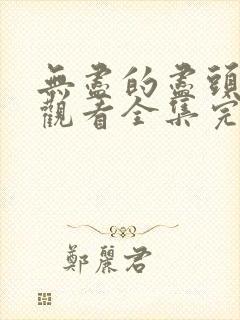 無盡的盡頭
觀看全集完
鄭麗君